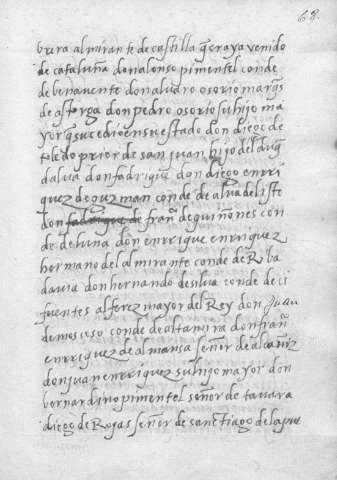 68.
brera almirante de castilla q̃ era ya venido
de cataluña don alonso pimentel conde
de benavente don alvaro osorio marq̃s
de astorga don pedro osorio su hijo ma
yor q̃ sucedio en su estado don diego de
toledo prior de san juan hijo del duq̃
dalva don fadrique don diego enrri
quez de guzman conde de alva de liste
don fran̄ de quiñones con
de de luna don enrrique enrriquez
hermano del almirante conde de Riba
davia don hernando de silva conde de ci
fuentes alferez mayor del Rey don Juan
de moscoso conde de altamira don fran̄
enrriquez de almansa señor de alcañiz
don juan enrriquez su hijo mayor don
bernardino pimentel señor de tavara
diego de Rojas señor de sanctiago de la pue